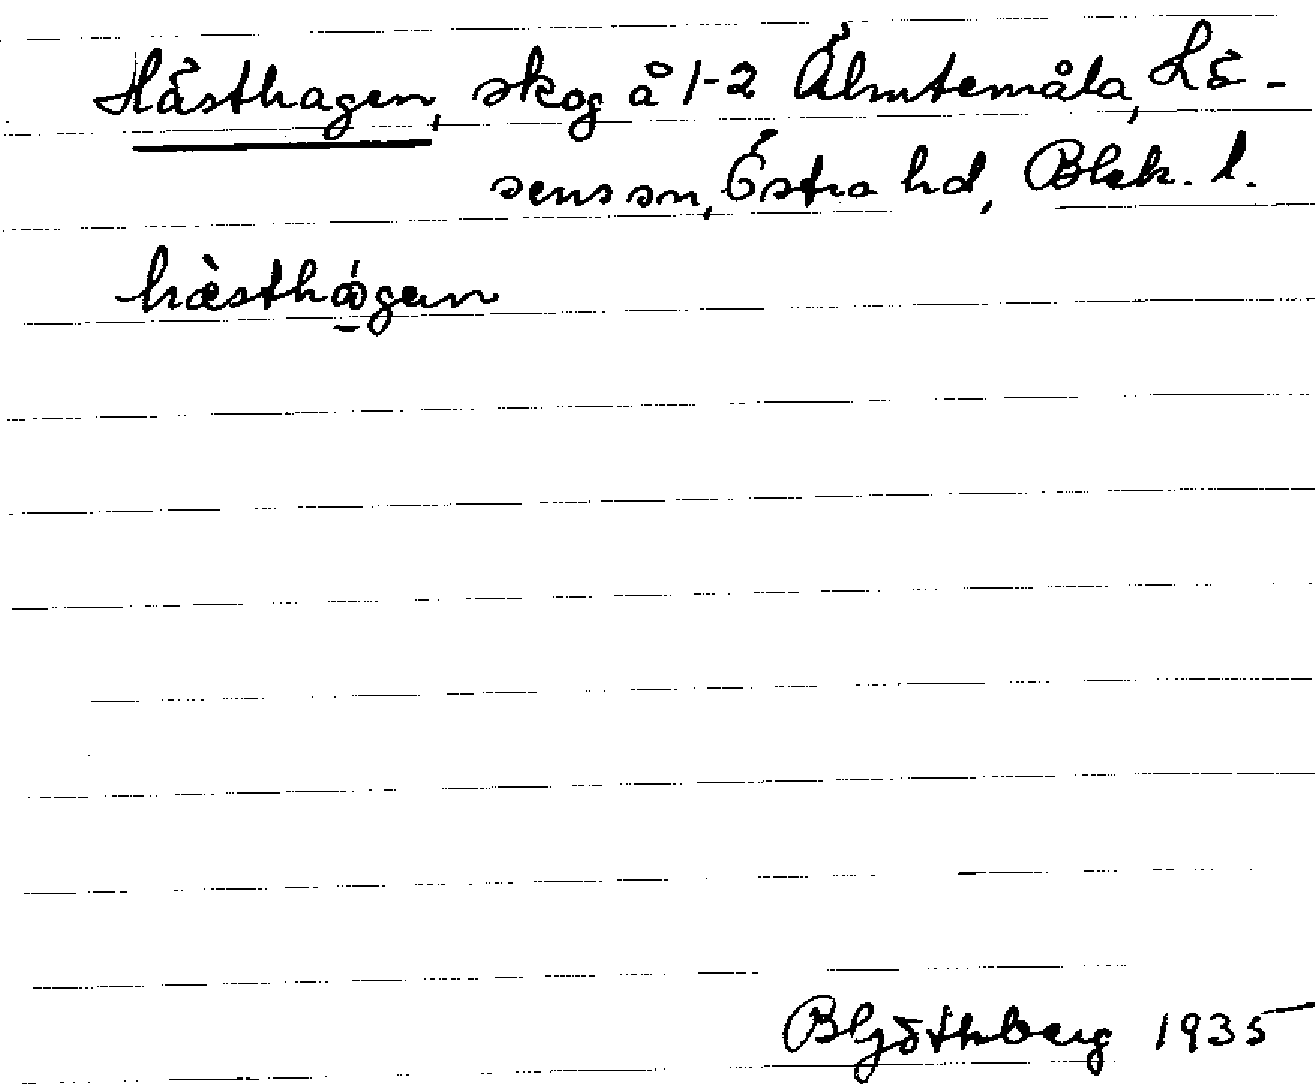 Hästhagen, skog å 1-2 Älmtemåla, Lö-
sens sn, Östra hd, Blek. l.
hæ̀sthá̱gen
B Götlberg 1935